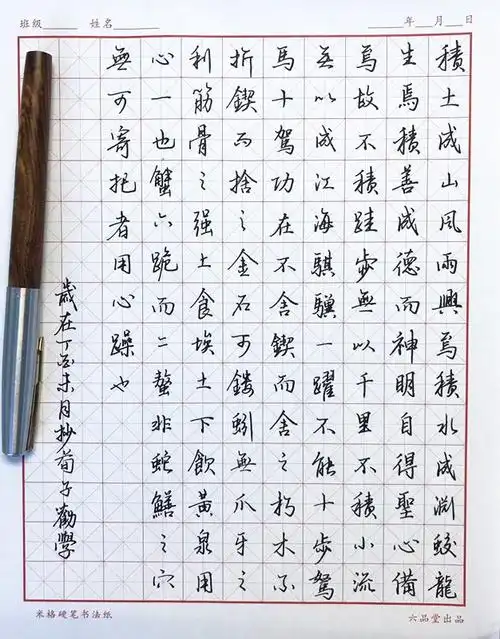 班级____ 姓名____ ____年__月__日
積土成山風雨興焉積水成淵蛟龍
生焉積善成德而神明自得聖心備
焉故不積跬步無以千里不積小流
無以成江海騏驥一躍不能十步駑
馬十駕功在不舍鍥而舍之朽木不
折鍥而捨之金石可鏤蚓無爪牙之
利筋骨之强上食埃土下飲黃泉用
心一也蟹六跪而二螯非蛇鱔之穴
無可寄托者用心躁也
歲在丁酉末月抄荀子勸學
米格硬笔书法纸
六品堂出品